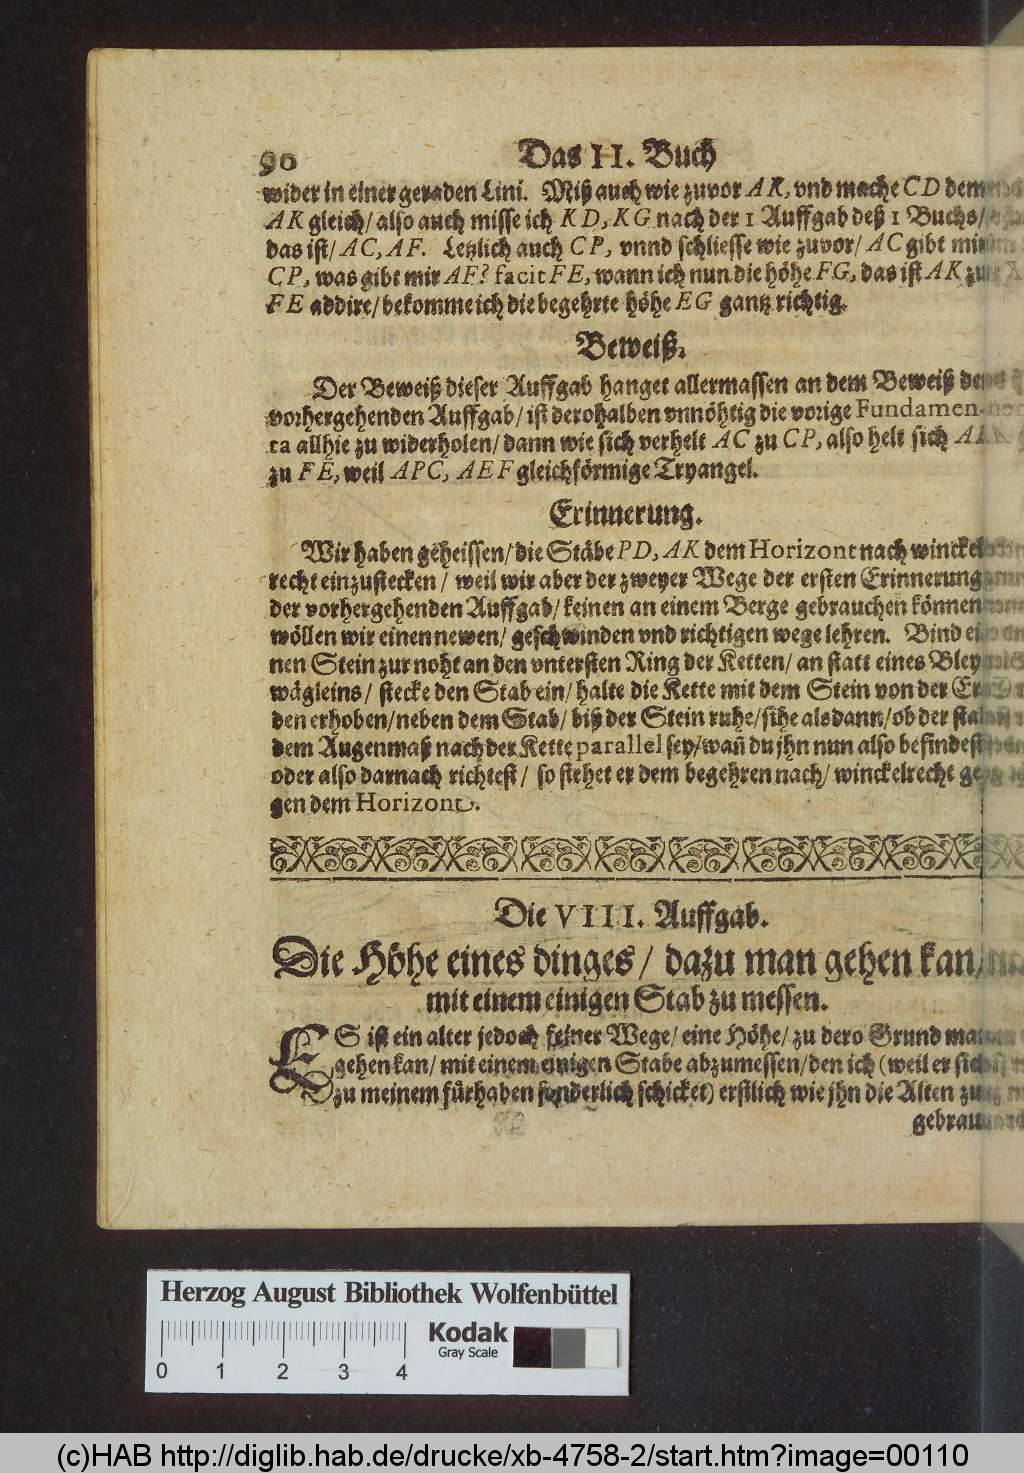 90 Das II. Buch
wider in einer geraden Lini. Miß auch wie zuvor AK, vnd mache CD dem
AK gleich/ also auch misse ich KD, KG nach der 1 Auffgab deß 1 Buchs/
das ist/ AC, AF. Letzlich auch CP, vnnd schliesse wie zuvor/ AC gibt mir
CP, was gibt mir AF? facit FE, wann ich nun die höhe FG, das ist AK zu
FE addire/ bekomme ich die begehrte höhe EG gantz richtig.
Beweiß.
Der Beweiß dieser Auffgab hanget allermassen an dem Beweiß der
vorhergehenden Auffgab/ ist derohalben vnnöhtig die vorige Fundamen-
ta allhie zu widerholen/ dann wie sich verhelt AC zu CP, also helt sich
zu FE, weil APC, AEF gleichförmige Tryangel.
Erinnerung.
Wir haben geheissen/ die Stäbe PD, AK dem Horizont nach winckel-
recht einzustecken/ weil wir aber der zweyer Wege der ersten Erinnerung
der vorhergehenden Auffgab/ keinen an einem Berge gebrauchen können
wöllen wir einen newen/ geschwinden vnd richtigen wege lehren. Bind ei-
nen Stein zur noht an den vntersten Ring der Ketten/ an statt eines Bley-
wägleins/ stecke den Stab ein/ halte die Kette mit dem Stein von der Er-
den erhoben/ neben dem Stab/ biß der Stein ruhe/ sihe als dann/ ob der stab
dem Augenmaß nach der Kette parallel sey/ wañ du jhn nun also befindest
oder also darnach richtest/ so stehet er dem begehren nach/ winckelrecht ge-
gen dem Horizont.
Die VIII. Auffgab.
Die Höhe eines dinges/ dazu man gehen kan/
mit einem einigen Stab zu messen.
ES ist ein alter jedoch feiner Wege/ eine Höhe/ zu dero Grund man
gehen kan/ mit einem einigen Stabe abzumessen/ den ich (weil er sich
zu meinem fürhaben sonderlich schicket) erstlich wie jhn die Alten zu
gebrau-
Herzog August Bibliothek Wolfenbüttel
Kodak
Gray Scale
0 1 2 3 4
(c)HAB http://diglib.hab.de/drucke/xb-4758-2/start.htm?image=00110